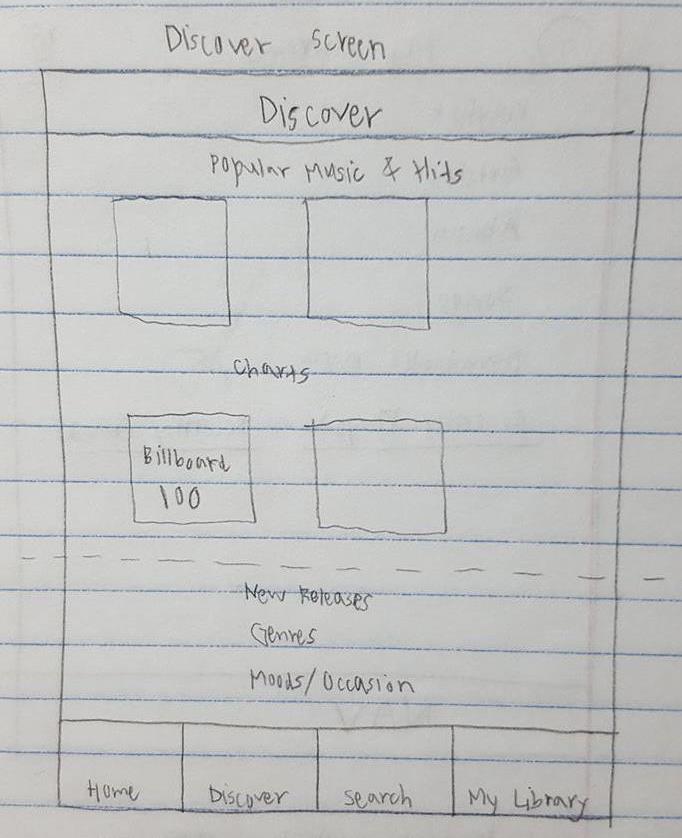 Discover Screen
Discover
Popular Music & Hits
Charts
Billboard
100
New Releases
Genres
Moods/Occasion
Home Discover Search My Library